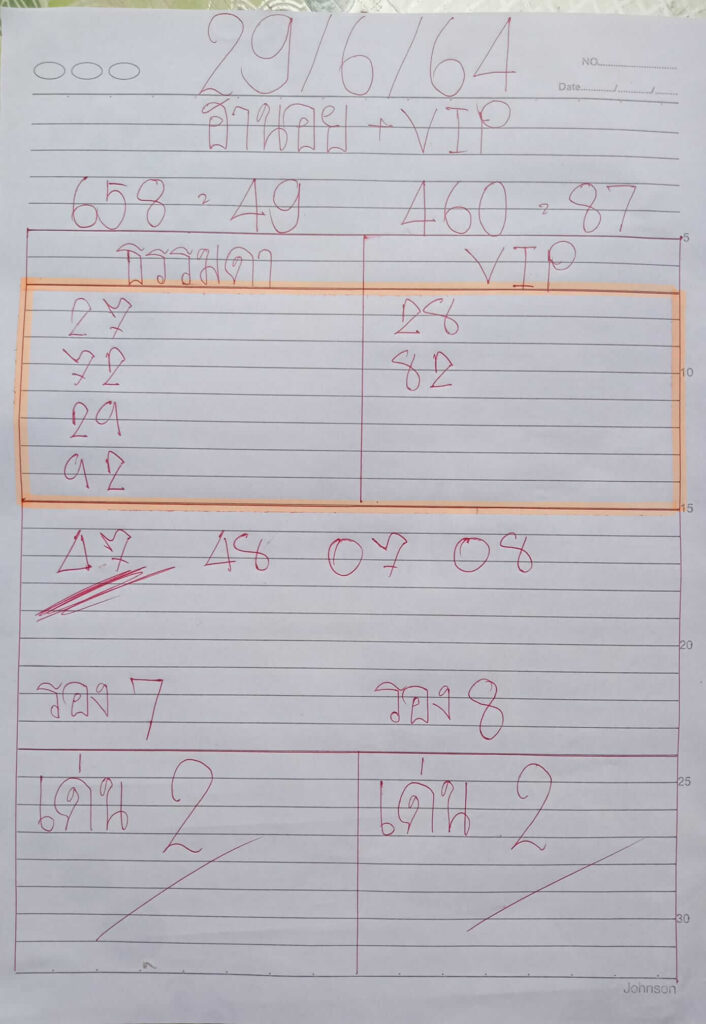 29/6/64
NO.
Date / /
ฮานอย + VIP
658 - 49 460 - 87
5
ธรรมดา VIP
27 28
72 82
10
29
92
15
47 48 07 08
20
รอง 7 รอง 8
เด่น 2 เด่น 2
25
30
Johnson